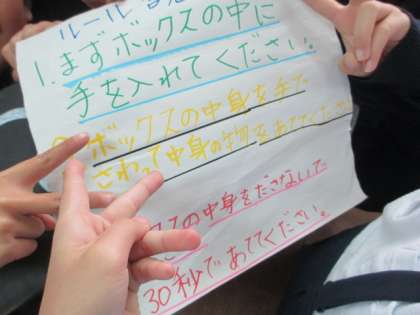 ルール
1.まずボックスの中に
手を入れてください。
ボックスの中身を手で
さわって中身の物をあててください
の中身をださないで
30秒であててください。